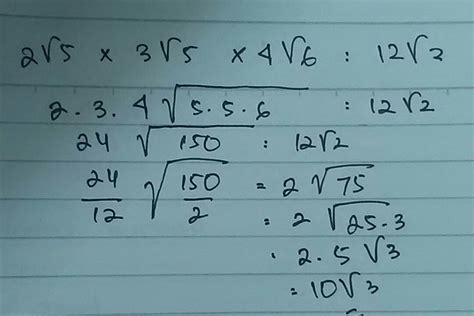 2√5 × 3√5 × 4√6 : 12√2
2 . 3 . 4 √5 . 5 . 6 : 12√2
24 √150 : 12√2
24/12 √150/2 = 2 √75
= 2 √25 . 3
. 2 . 5 √3
= 10√3